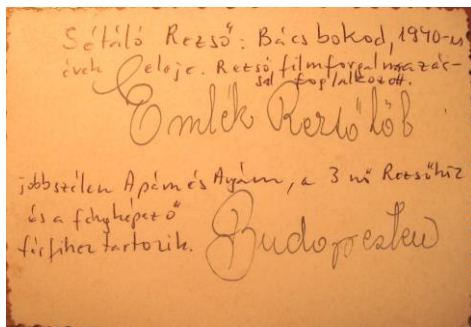 Sétáló Rezső: Bácsbokod, 1940-es
évek eleje. Rezső filmforgalmazás-
sal foglalkozott.
Emlék Rezsőtől
jobbszélen Apám és Anyám, a 3 nő Rezsőhöz
és a fényképező
férfihez tartozik.
Budapesten